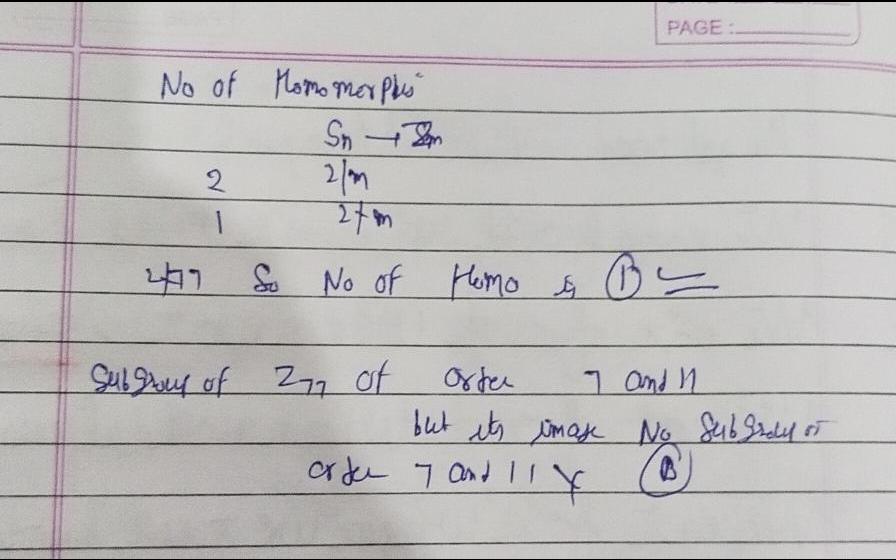 PAGE :
No of Homomorphis
Sn → Zm
2 2|m
1 2∤m
2∤77 So No of Homo is ①
Subgroup of Z77 of order 7 and 11
but its image No Subgroup of
order 7 and 11 Ⓑ